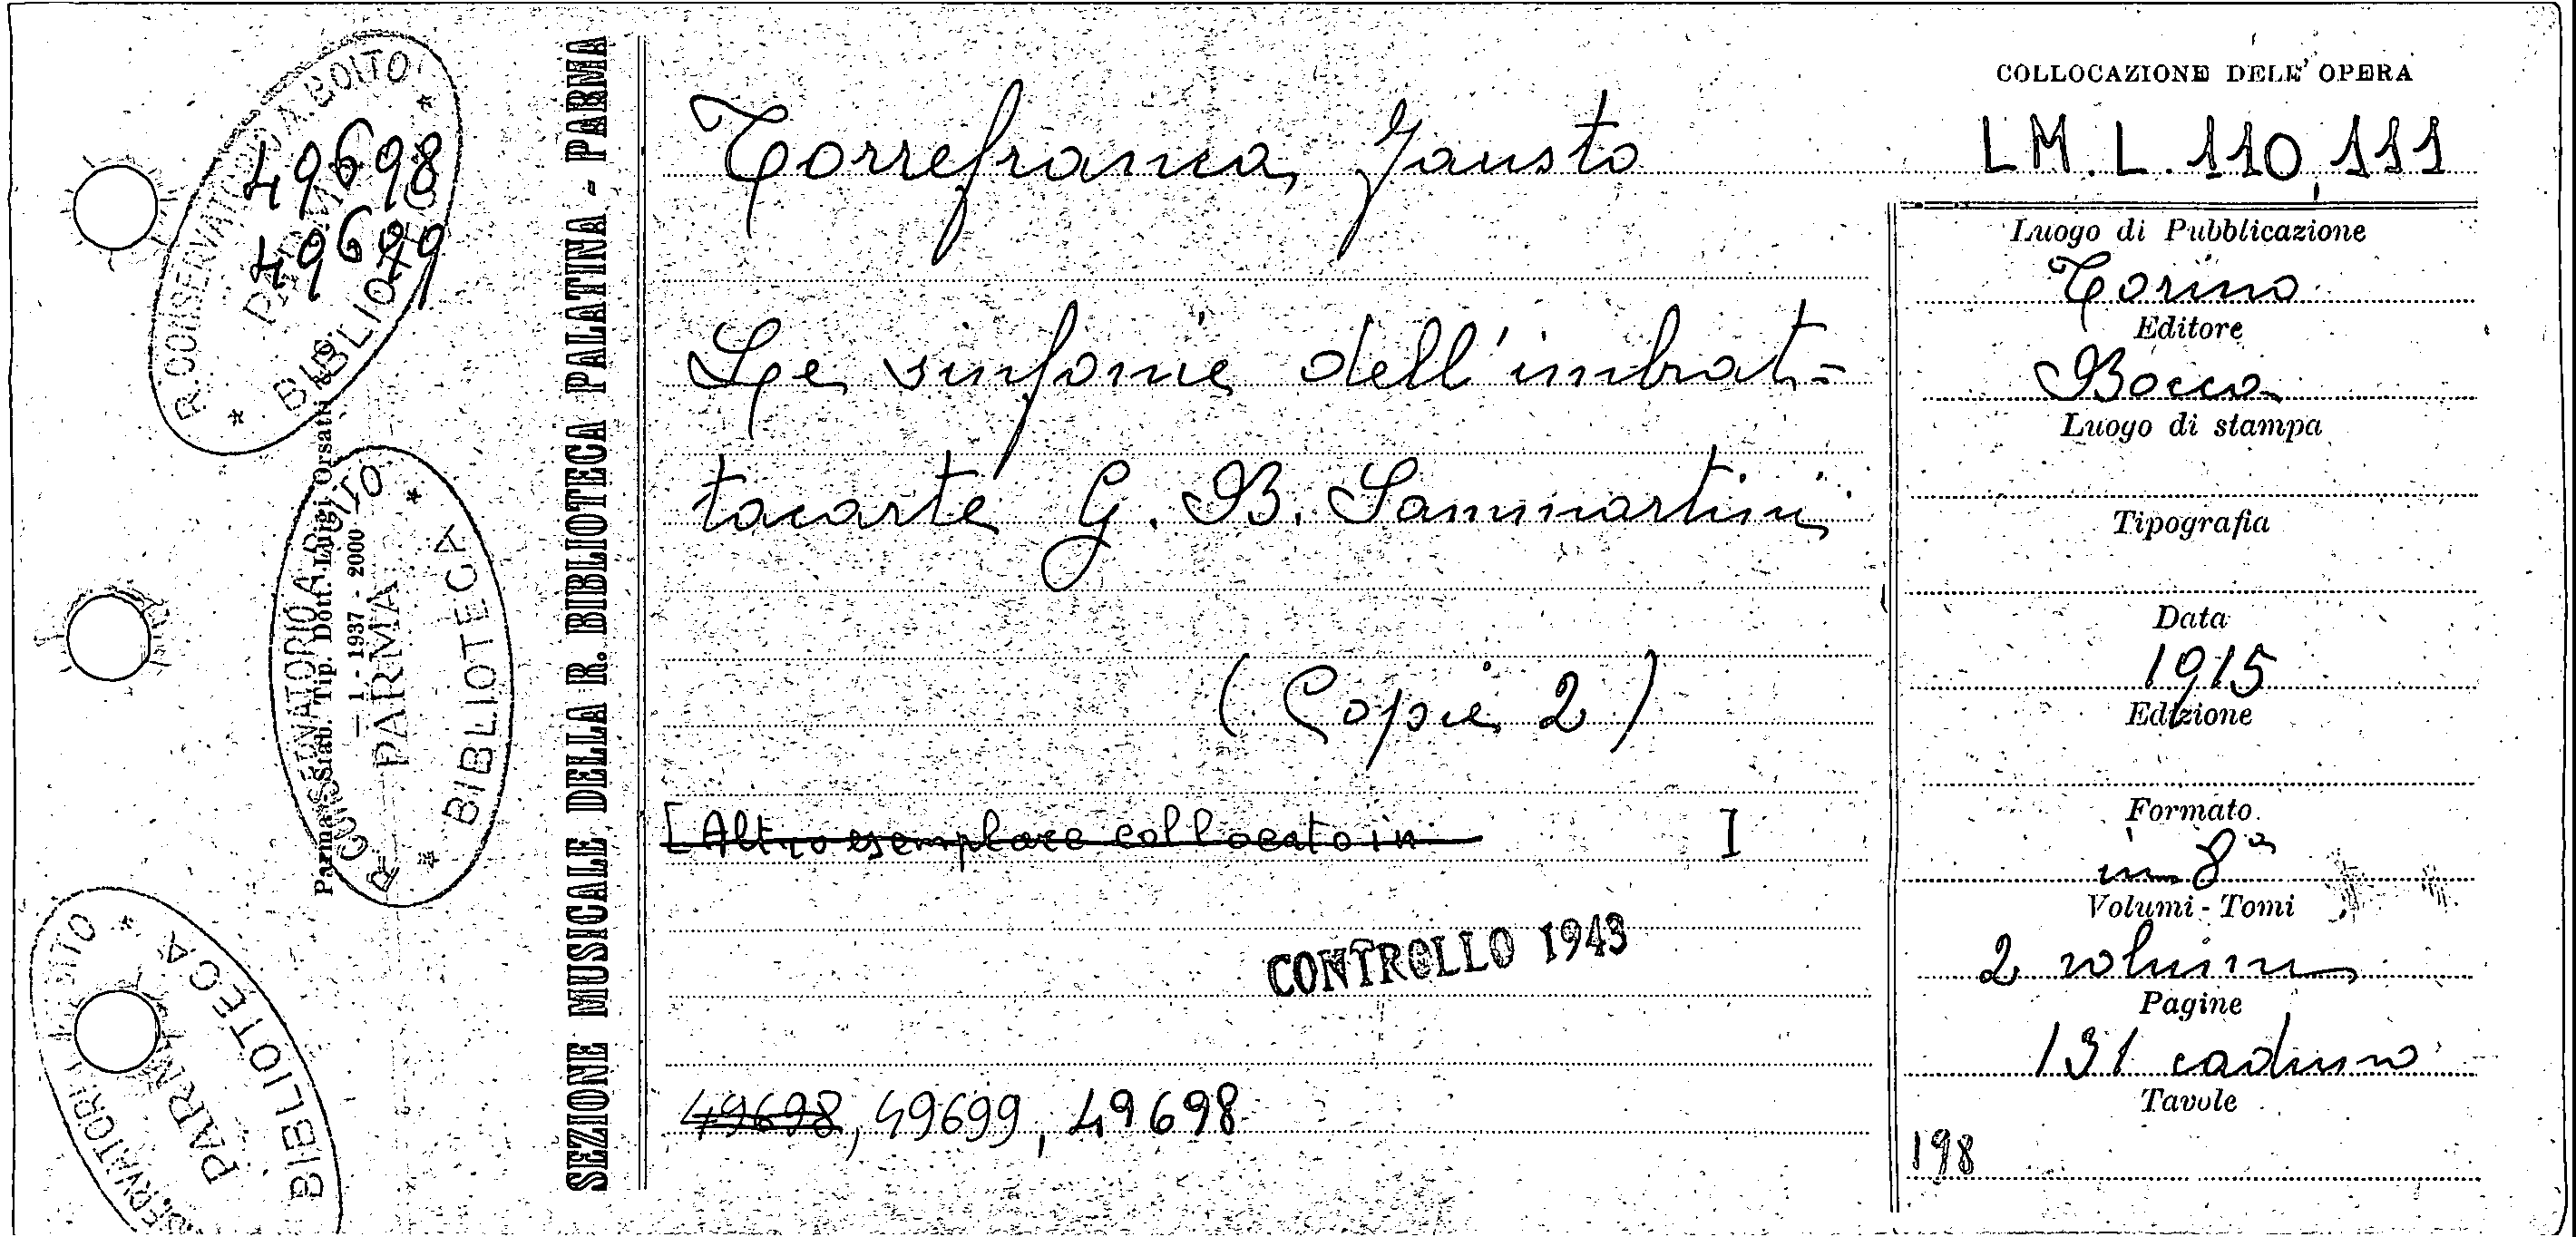 COLLOCAZIONE DELL' OPERA
LM. L. 110, 111
Torrefranca, Fausto
Le sinfonie dell'imbrat-
tacarte G. B. Sammartini
(Copie 2)
[Altro esemplare collocato in
I
CONTROLLO 1943
49698, 49699, 49698
Luogo di Pubblicazione
Torino
Editore
Bocca
Luogo di stampa
Tipografia
Data
1915
Edizione
Formato
in 8°
Volumi - Tomi
2 volumi
Pagine
131 caduno
Tavole
198
SEZIONE MUSICALE DELLA R. BIBLIOTECA PALATINA - PARMA
Parma Stab. Tip. Dott. Luigi Orsatti
1 - 1937 - 2000
49698
49699
R. CONSERVATORIO A. BOITO
PARMA
* BIBLIOTECA *
R. CONSERVATORIO A. BOITO
PARMA
* BIBLIOTECA *
PARMA
BIBLIOTECA *